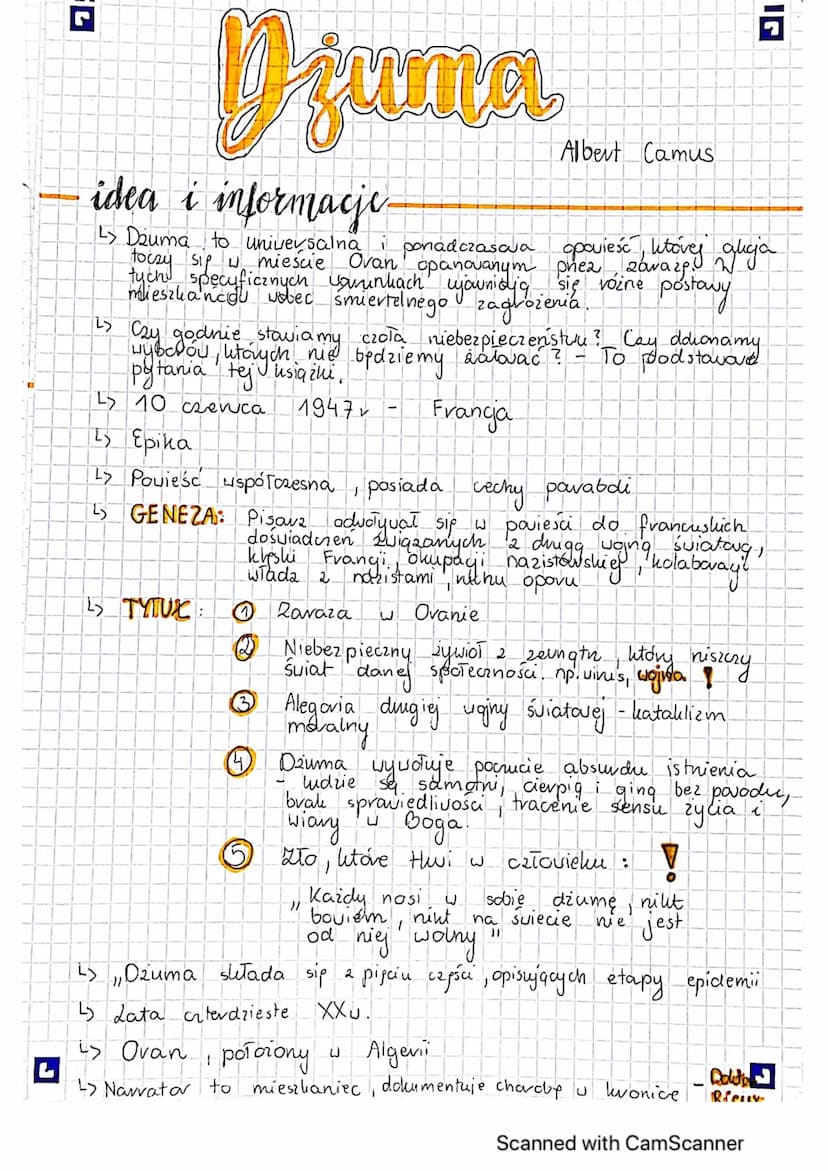 Dżuma
Albert Camus
idea i informacje
↳ Dżuma to uniwersalna i ponadczasowa opowieść, której akcja
toczy się w mieście Oran opanowanym przez zarazę. W
tych specyficznych warunkach ujawniają się różne postawy
mieszkańców wobec śmiertelnego zagrożenia.
↳ Czy godnie stawiamy czoła niebezpieczeństwu? Czy dokonamy
wyborów, których nie będziemy żałować? - To podstawowe
pytania tej książki.
↳ 10 czerwca 1947r - Francja
↳ Epika
↳ Powieść współczesna, posiada cechy paraboli
↳ GENEZA: Pisarz odwoływał się w powieści do francuskich
doświadczeń związanych z drugą wojną światową,
klęski Francji, okupacji nazistowskiej, kolaboracji
władz z nazistami, ruchu oporu
↳ TYTUŁ: 1 Zaraza w Oranie
2 Niebezpieczny żywioł z zewnątrz, który niszczy
świat danej społeczności. np. wirus, wojna !
3 Alegoria drugiej wojny światowej - kataklizm
moralny
4 Dżuma wywołuje poczucie absurdu istnienia
- ludzie są samotni, cierpią i giną bez powodu,
brak sprawiedliwości, tracenie sensu życia i
wiary w Boga.
5 Zło, które tkwi w człowieku: !
„Każdy nosi w sobie dżumę, nikt
bowiem, nikt na świecie nie jest
od niej wolny"
↳ „Dżuma składa się z pięciu części, opisujących etapy epidemii
↳ Lata czterdzieste XXw.
↳ Oran, położony w Algerii
↳ Narrator to mieszkaniec, dokumentuje chorobę w kronice - Doktor
Rieux
Scanned with CamScanner